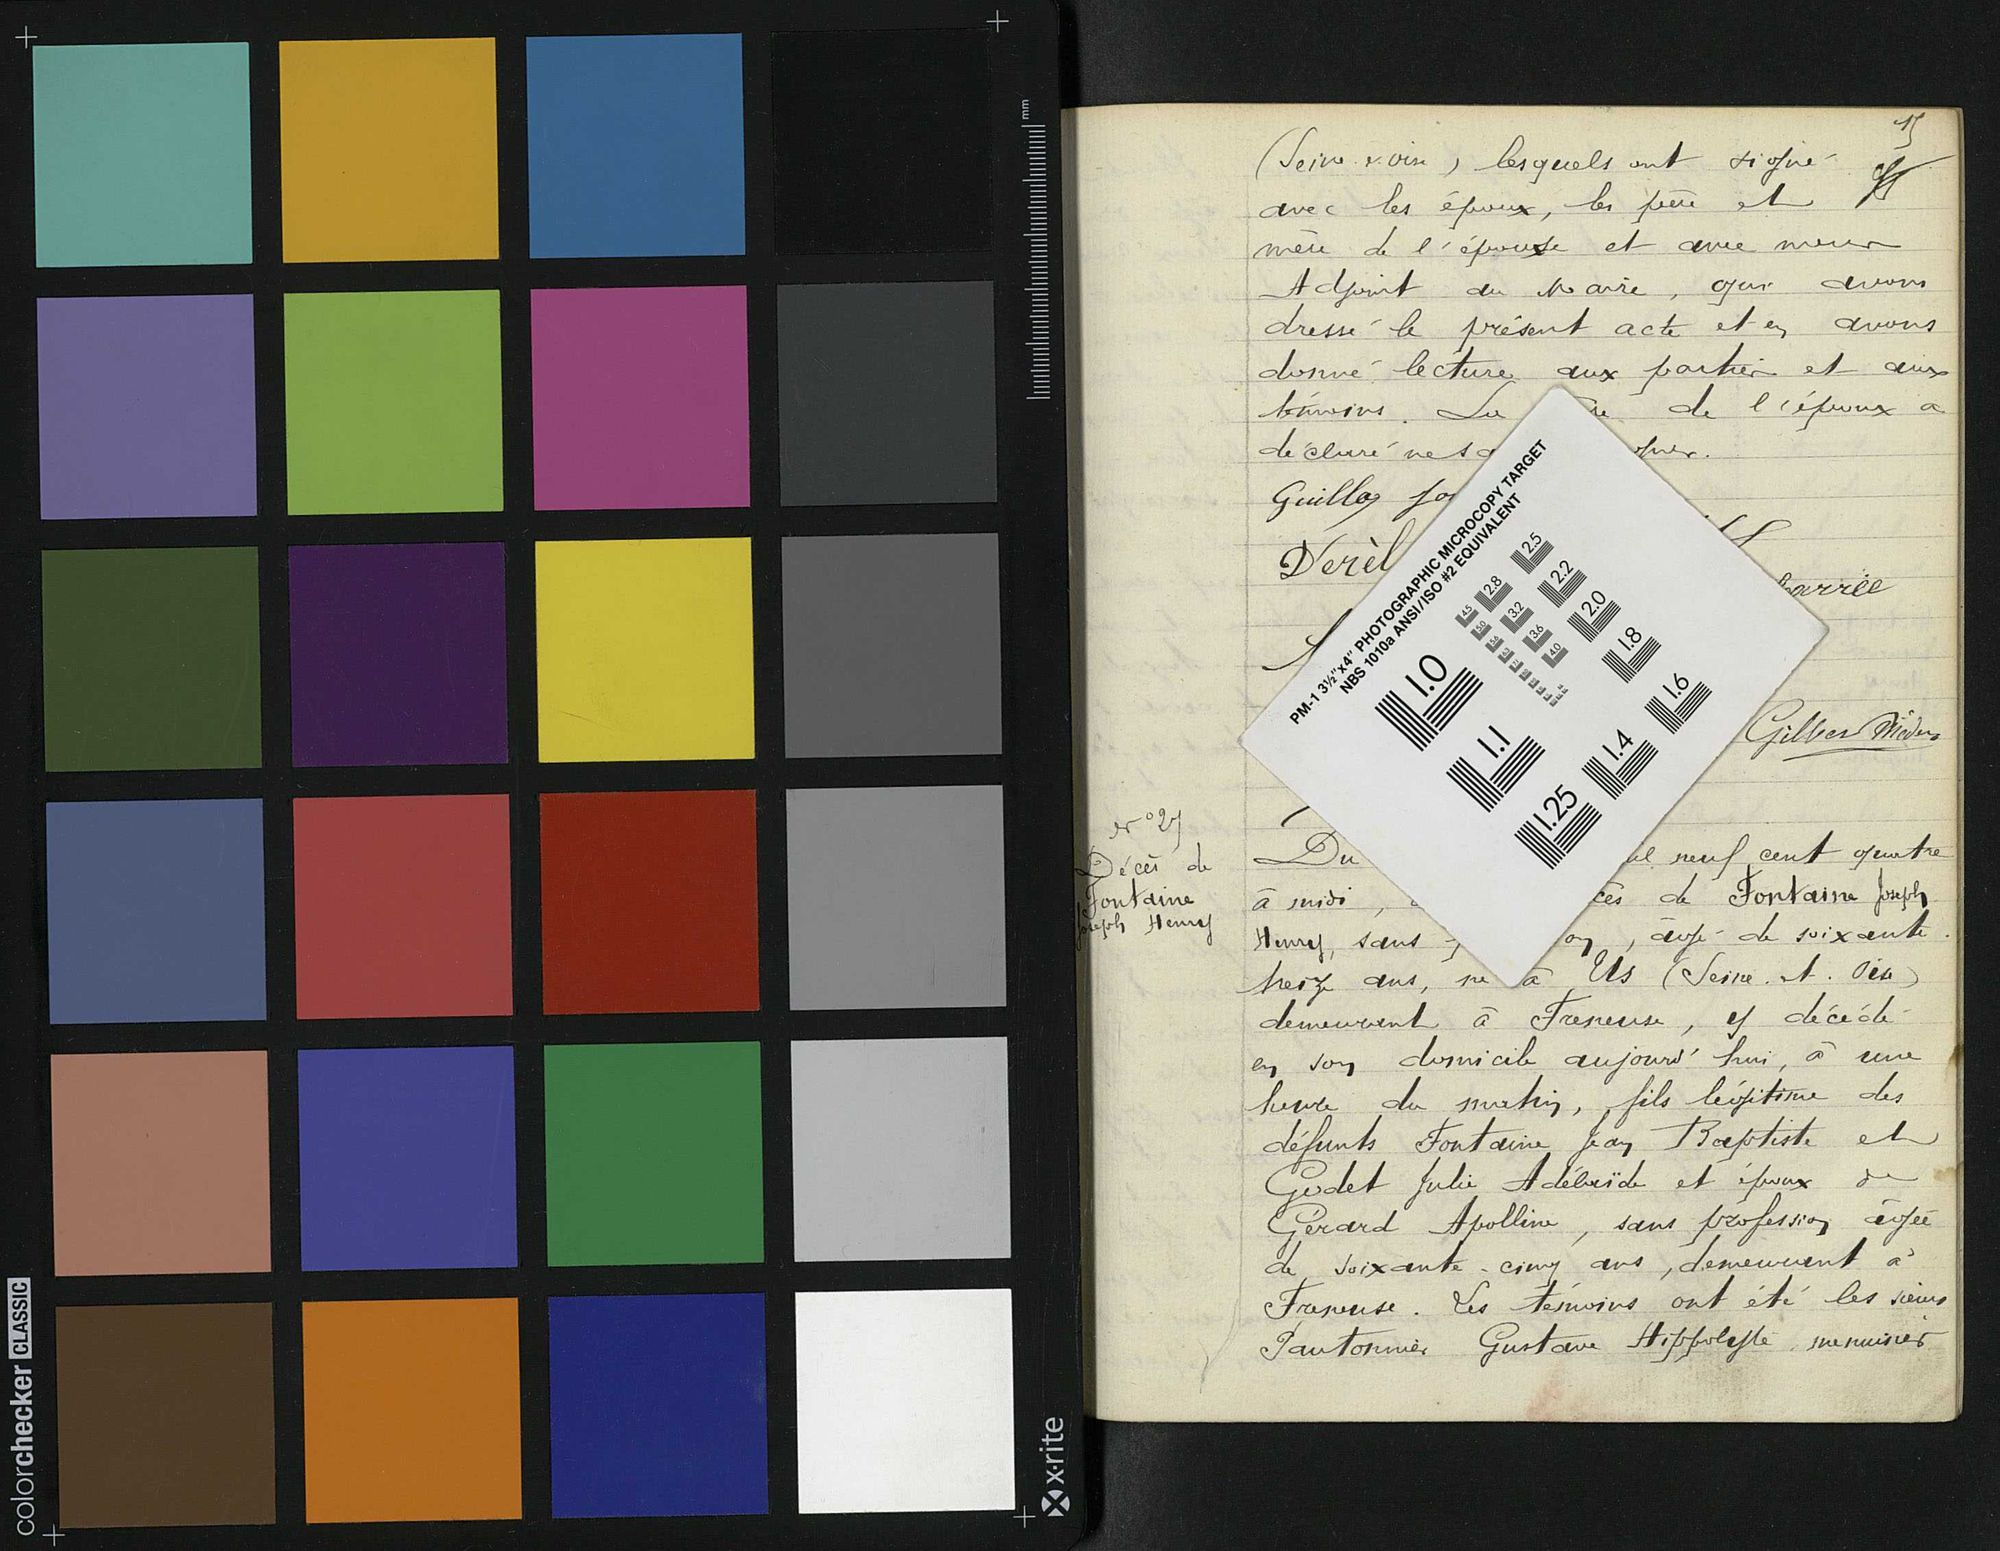 mm
colorchecker CLASSIC
x·rite
15
(Seine & oise) lesquels ont signé
avec les époux, les père et
mère de l'épouse et avec nous
Adjoint au Maire, qui avons
dressé le présent acte et en avons
donné lecture aux parties et aux
témoins. La de l'époux a
déclaré ne
Guilloy
Derèl
barrée
PM-1 3½"x4" PHOTOGRAPHIC MICROCOPY TARGET
NBS 1010a ANSI/ISO #2 EQUIVALENT
1.0
1.1
1.25
1.4
1.6
1.8
2.0
2.2
2.5
2.8
3.2
3.6
4.0
4.5
5.0
5.6
N° 27
Décès de
Fontaine
Joseph Henry
Du neuf cent quatre
à midi, de Fontaine Joseph
Henry, sans , âgé de soixante
treize ans, né à Us (Seine et Oise)
demeurant à Freneuse, y décédé
en son domicile aujourd'hui, à une
heure du matin, fils légitime des
défunts Fontaine Jean Baptiste et
Godet Julie Adélaïde et époux de
Gérard Apolline, sans profession âgée
de soixante-cinq ans, demeurant à
Freneuse. Les témoins ont été les sieurs
Pautonnier Gustave Hippolyte menuisier